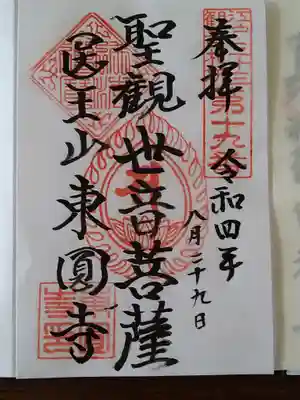 奉拝
令和四年
八月二十九日
聖観世音菩薩
医王山東圓寺